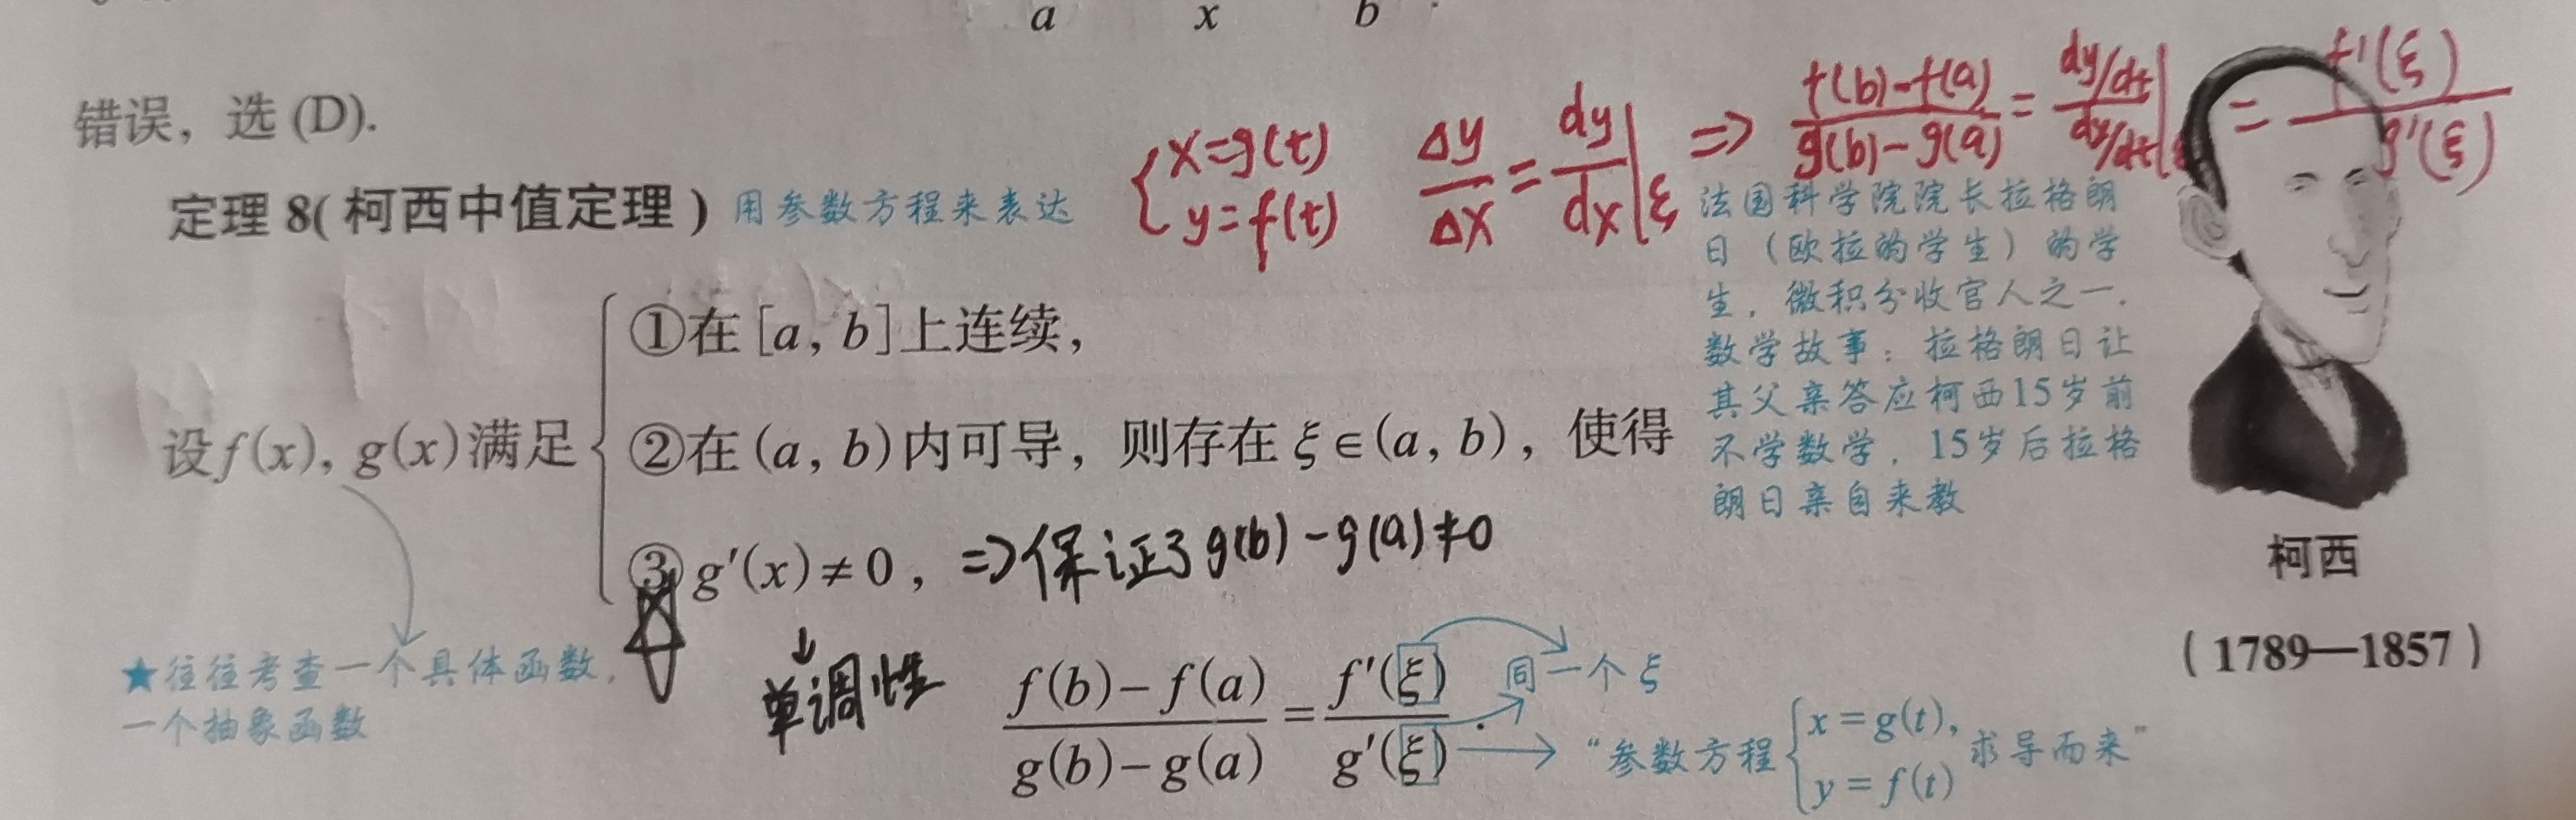 a x b
错误，选 (D).
定理 8( 柯西中值定理 ) 用参数方程来表达
{ x=g(t)
y=f(t)
Δy/Δx = dy/dx|ξ ⇒ f(b)-f(a)/g(b)-g(a) = dy/dt/dx/dt|ξ = f'(ξ)/g'(ξ)
法国科学院院长拉格朗
日（欧拉的学生）的学
生，微积分收官人之一.
数学故事：拉格朗日让
其父亲答应柯西15岁前
不学数学，15岁后拉格
朗日亲自来教
设 f(x), g(x) 满足
①在 [a, b] 上连续，
②在 (a, b) 内可导，则存在 ξ∈(a, b)，使得
③ g′(x) ≠ 0， ⇒保证了 g(b)-g(a)≠0
↓
单调性
★往往考查一个具体函数，
一个抽象函数
f(b)-f(a)/g(b)-g(a) = f′(ξ)/g′(ξ).
同一个 ξ
“参数方程 { x=g(t), y=f(t) 求导而来”
柯西
（1789—1857）